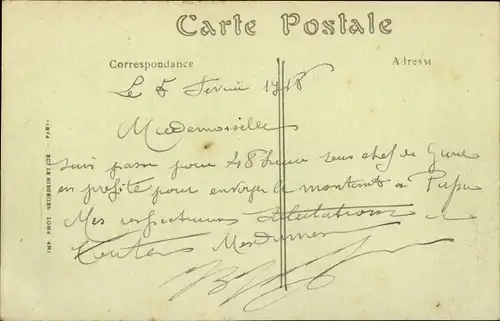 Carte Postale
Correspondance
Adresse
Le 5 Fevrier 1918
Mademoiselle
suis passe pour 48 heure sous chef de Gare
en profite pour envoyer le montant a
Mes respectueuses Salutations
Toutes Mesdames
IMP. PHOT. NEURDEIN ET CIE. — PARIS